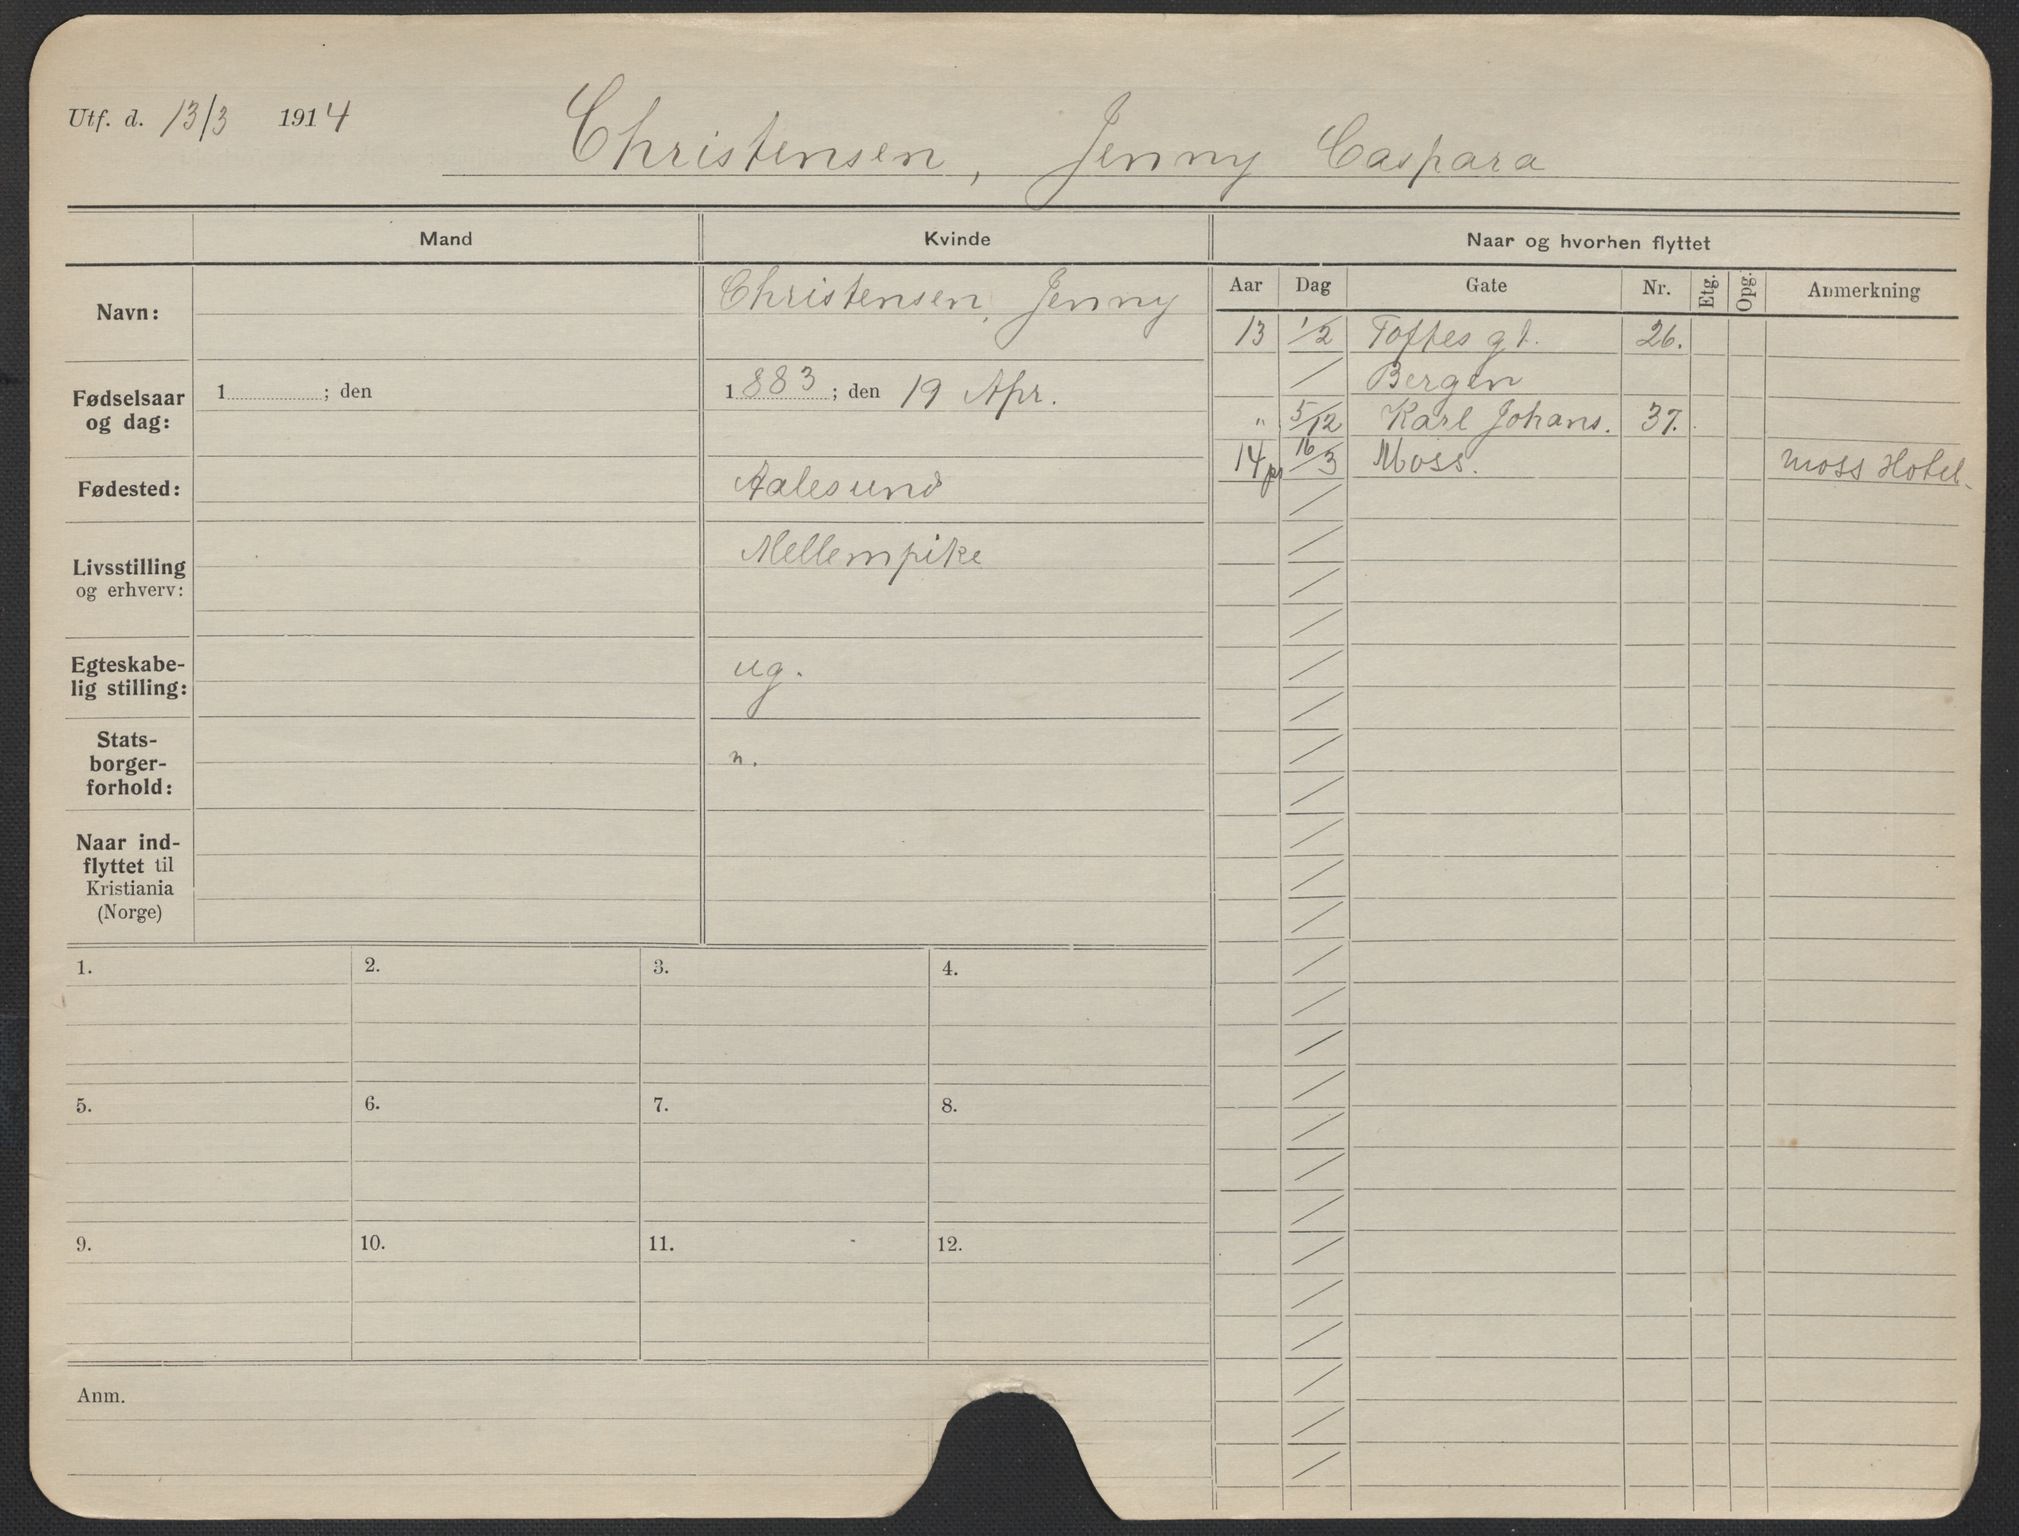 Utf. d. 13/3 1914
Christensen, Jenny Caspara
Mand
Kvinde
Naar og hvorhen flyttet
Navn:
Christensen, Jenny
Fødselsaar og dag:
1 ; den
1883 ; den 19 Apr.
Fødested:
Aalesund
Livsstilling og erhverv:
Mellempike
Egteskabe-
lig stilling:
ug.
Stats-
borger-
forhold:
n.
Naar ind-
flyttet til
Kristiania
(Norge)
Aar Dag Gate Nr. Etg. Opg. Anmerkning
13 1/2 Toftes gt. 26.
/ Bergen
" 5/12 Karl Johans. 37.
14 16/3 Moss. Moss Hotel.
1. 2. 3. 4.
5. 6. 7. 8.
9. 10. 11. 12.
Anm.